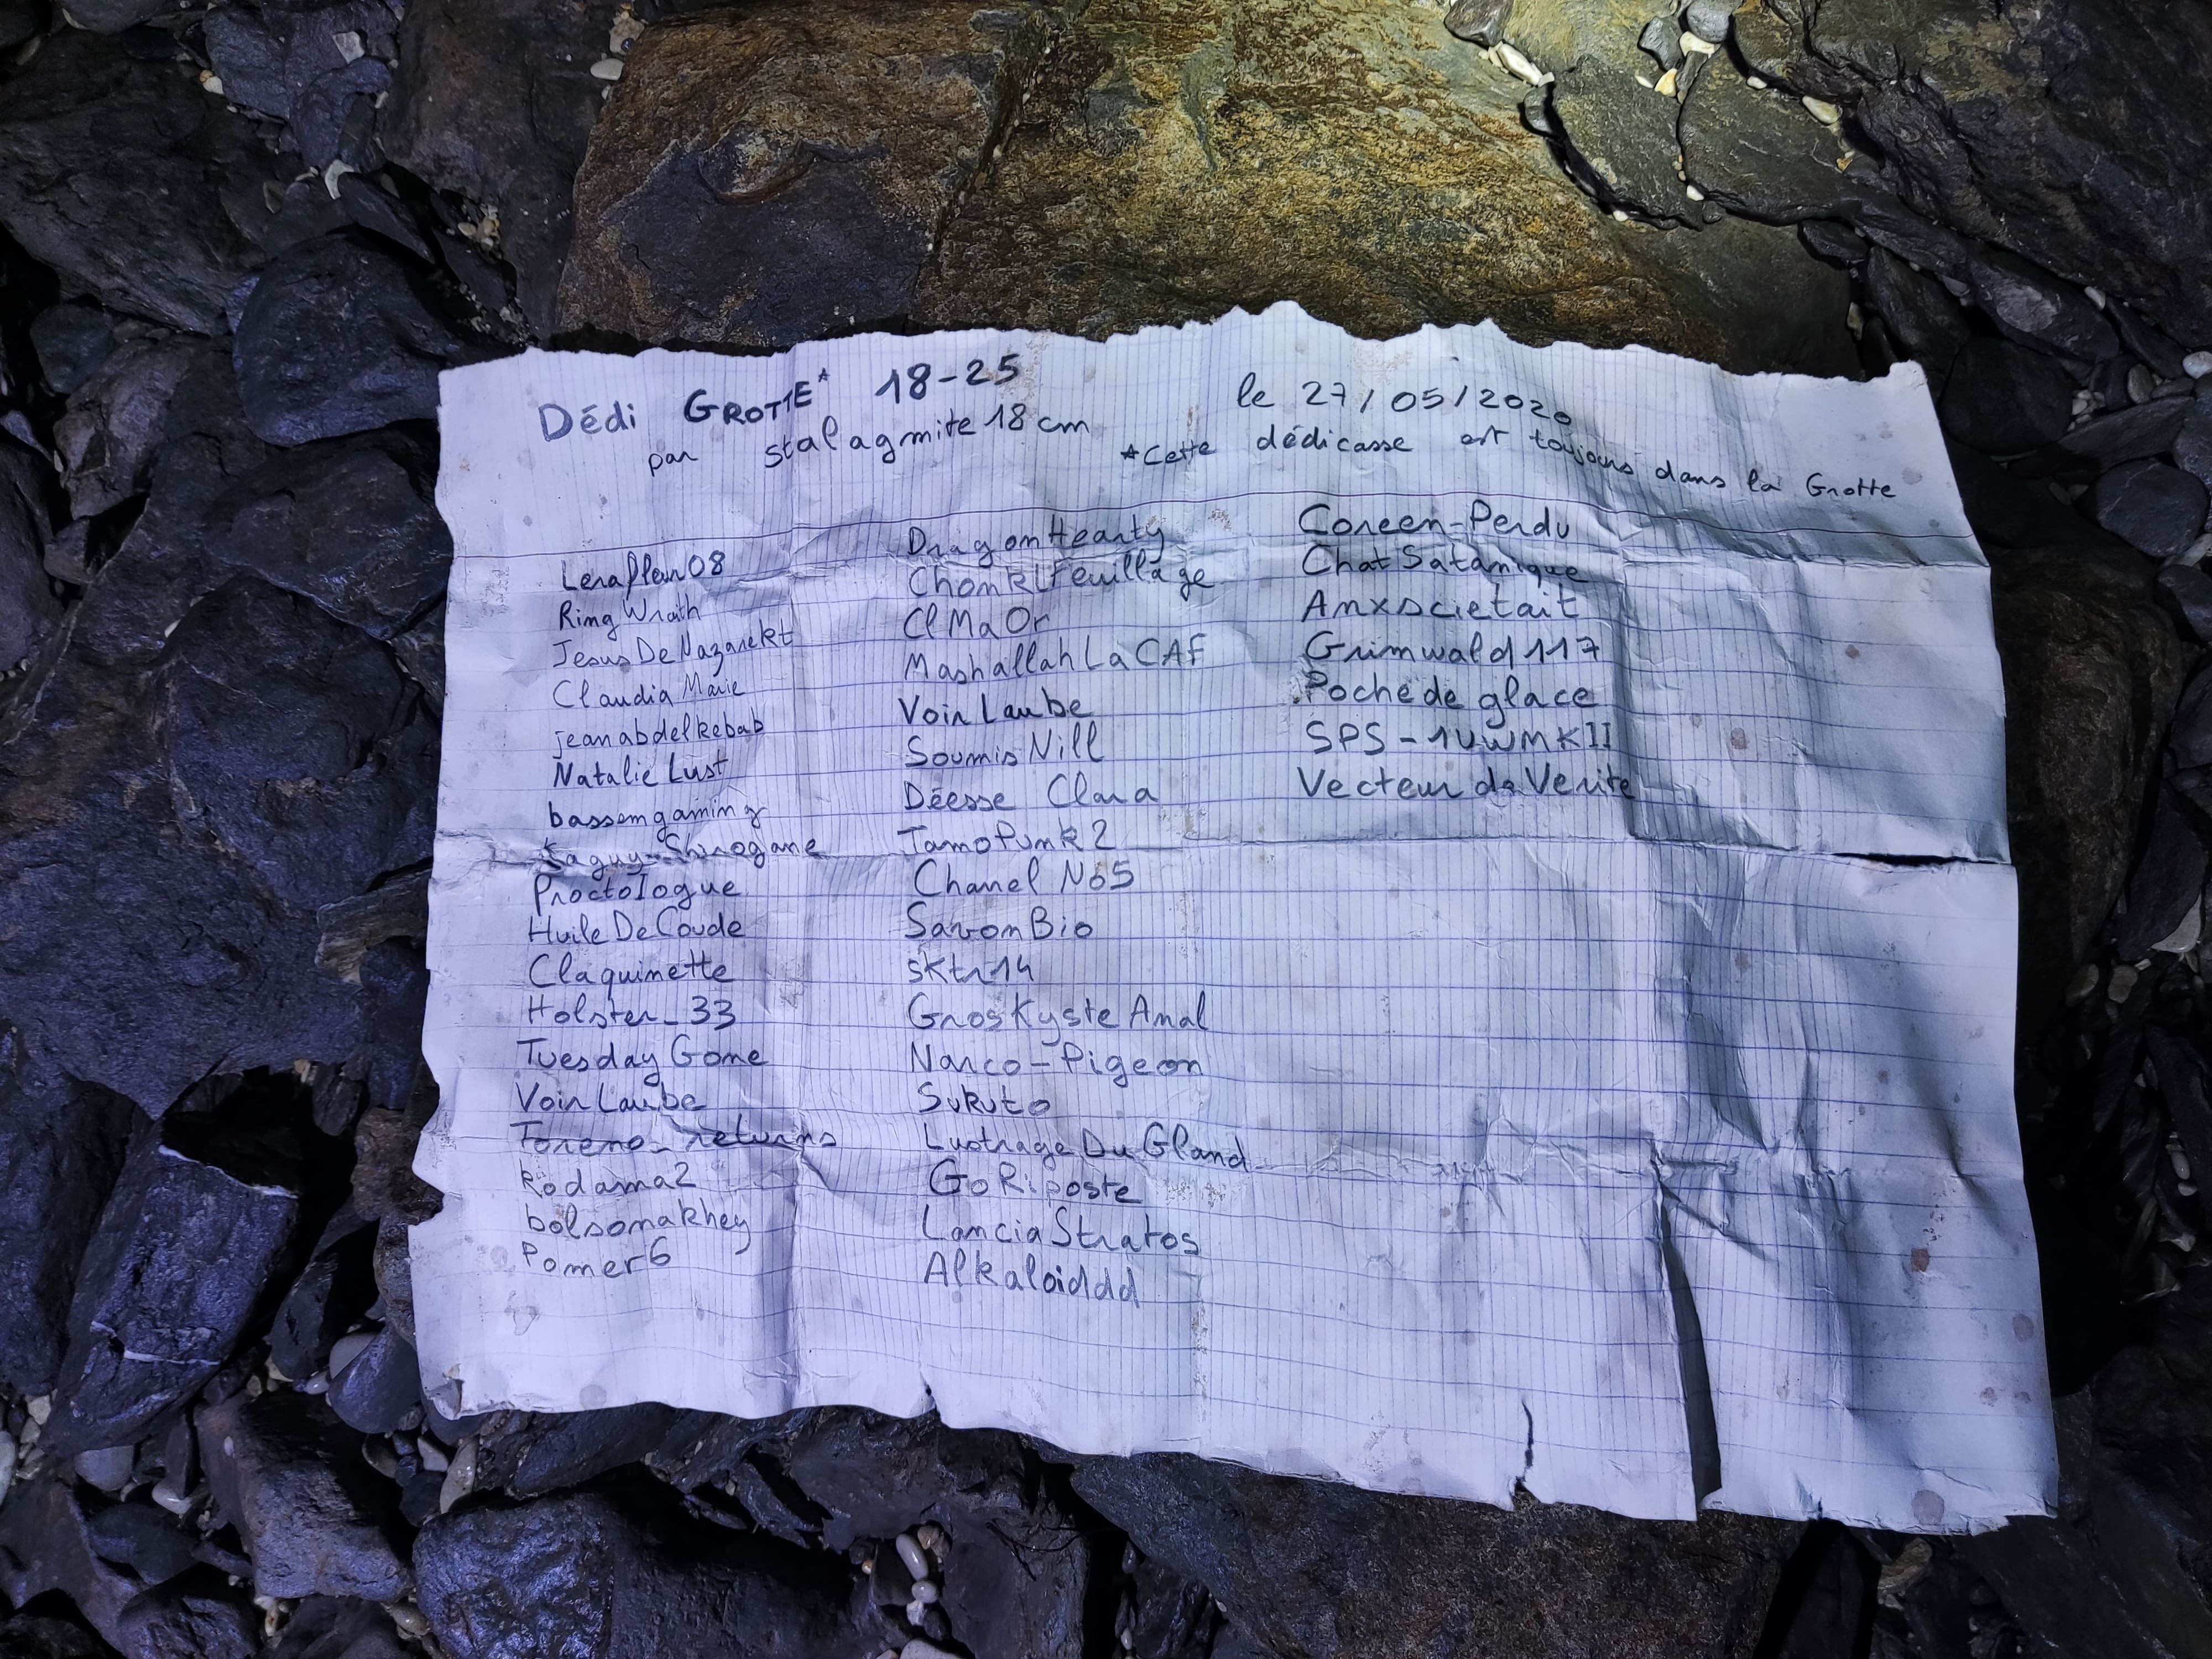 Dédi GROTTE* 18-25
par stalagmite 18 cm
le 27/05/2020
*Cette dédicasse est toujours dans la Grotte
Lenafleur08
Ring Wraith
Jesus De Nazarekt
Claudia Marie
jeanabdelkebab
Natalie Lust
bassemgaming
Kaguy-Shirogane
Proctologue
Huile De Coude
Claquinette
Holster_33
Tuesday Gone
Voir Laube
Toreno_returns
Kodama2
bolsonakhey
Pomer6
DragonHearty
ChonklFeuillage
ClMaOr
Mashallah La CAF
Voir Laube
Soumis Nill
Déesse Clara
TamoPunk2
Chanel No5
SavonBio
sktr14
Gros Kyste Anal
Narco-Pigeon
Sukuto
Lustrage Du Gland
GoRiposte
Lancia Stratos
Alkaloiddd
Coreen-Perdu
Chat Satanique
Anxscietait
Grimwald117
Poche de glace
SPS-1UWMKII
Vecteur de Verite